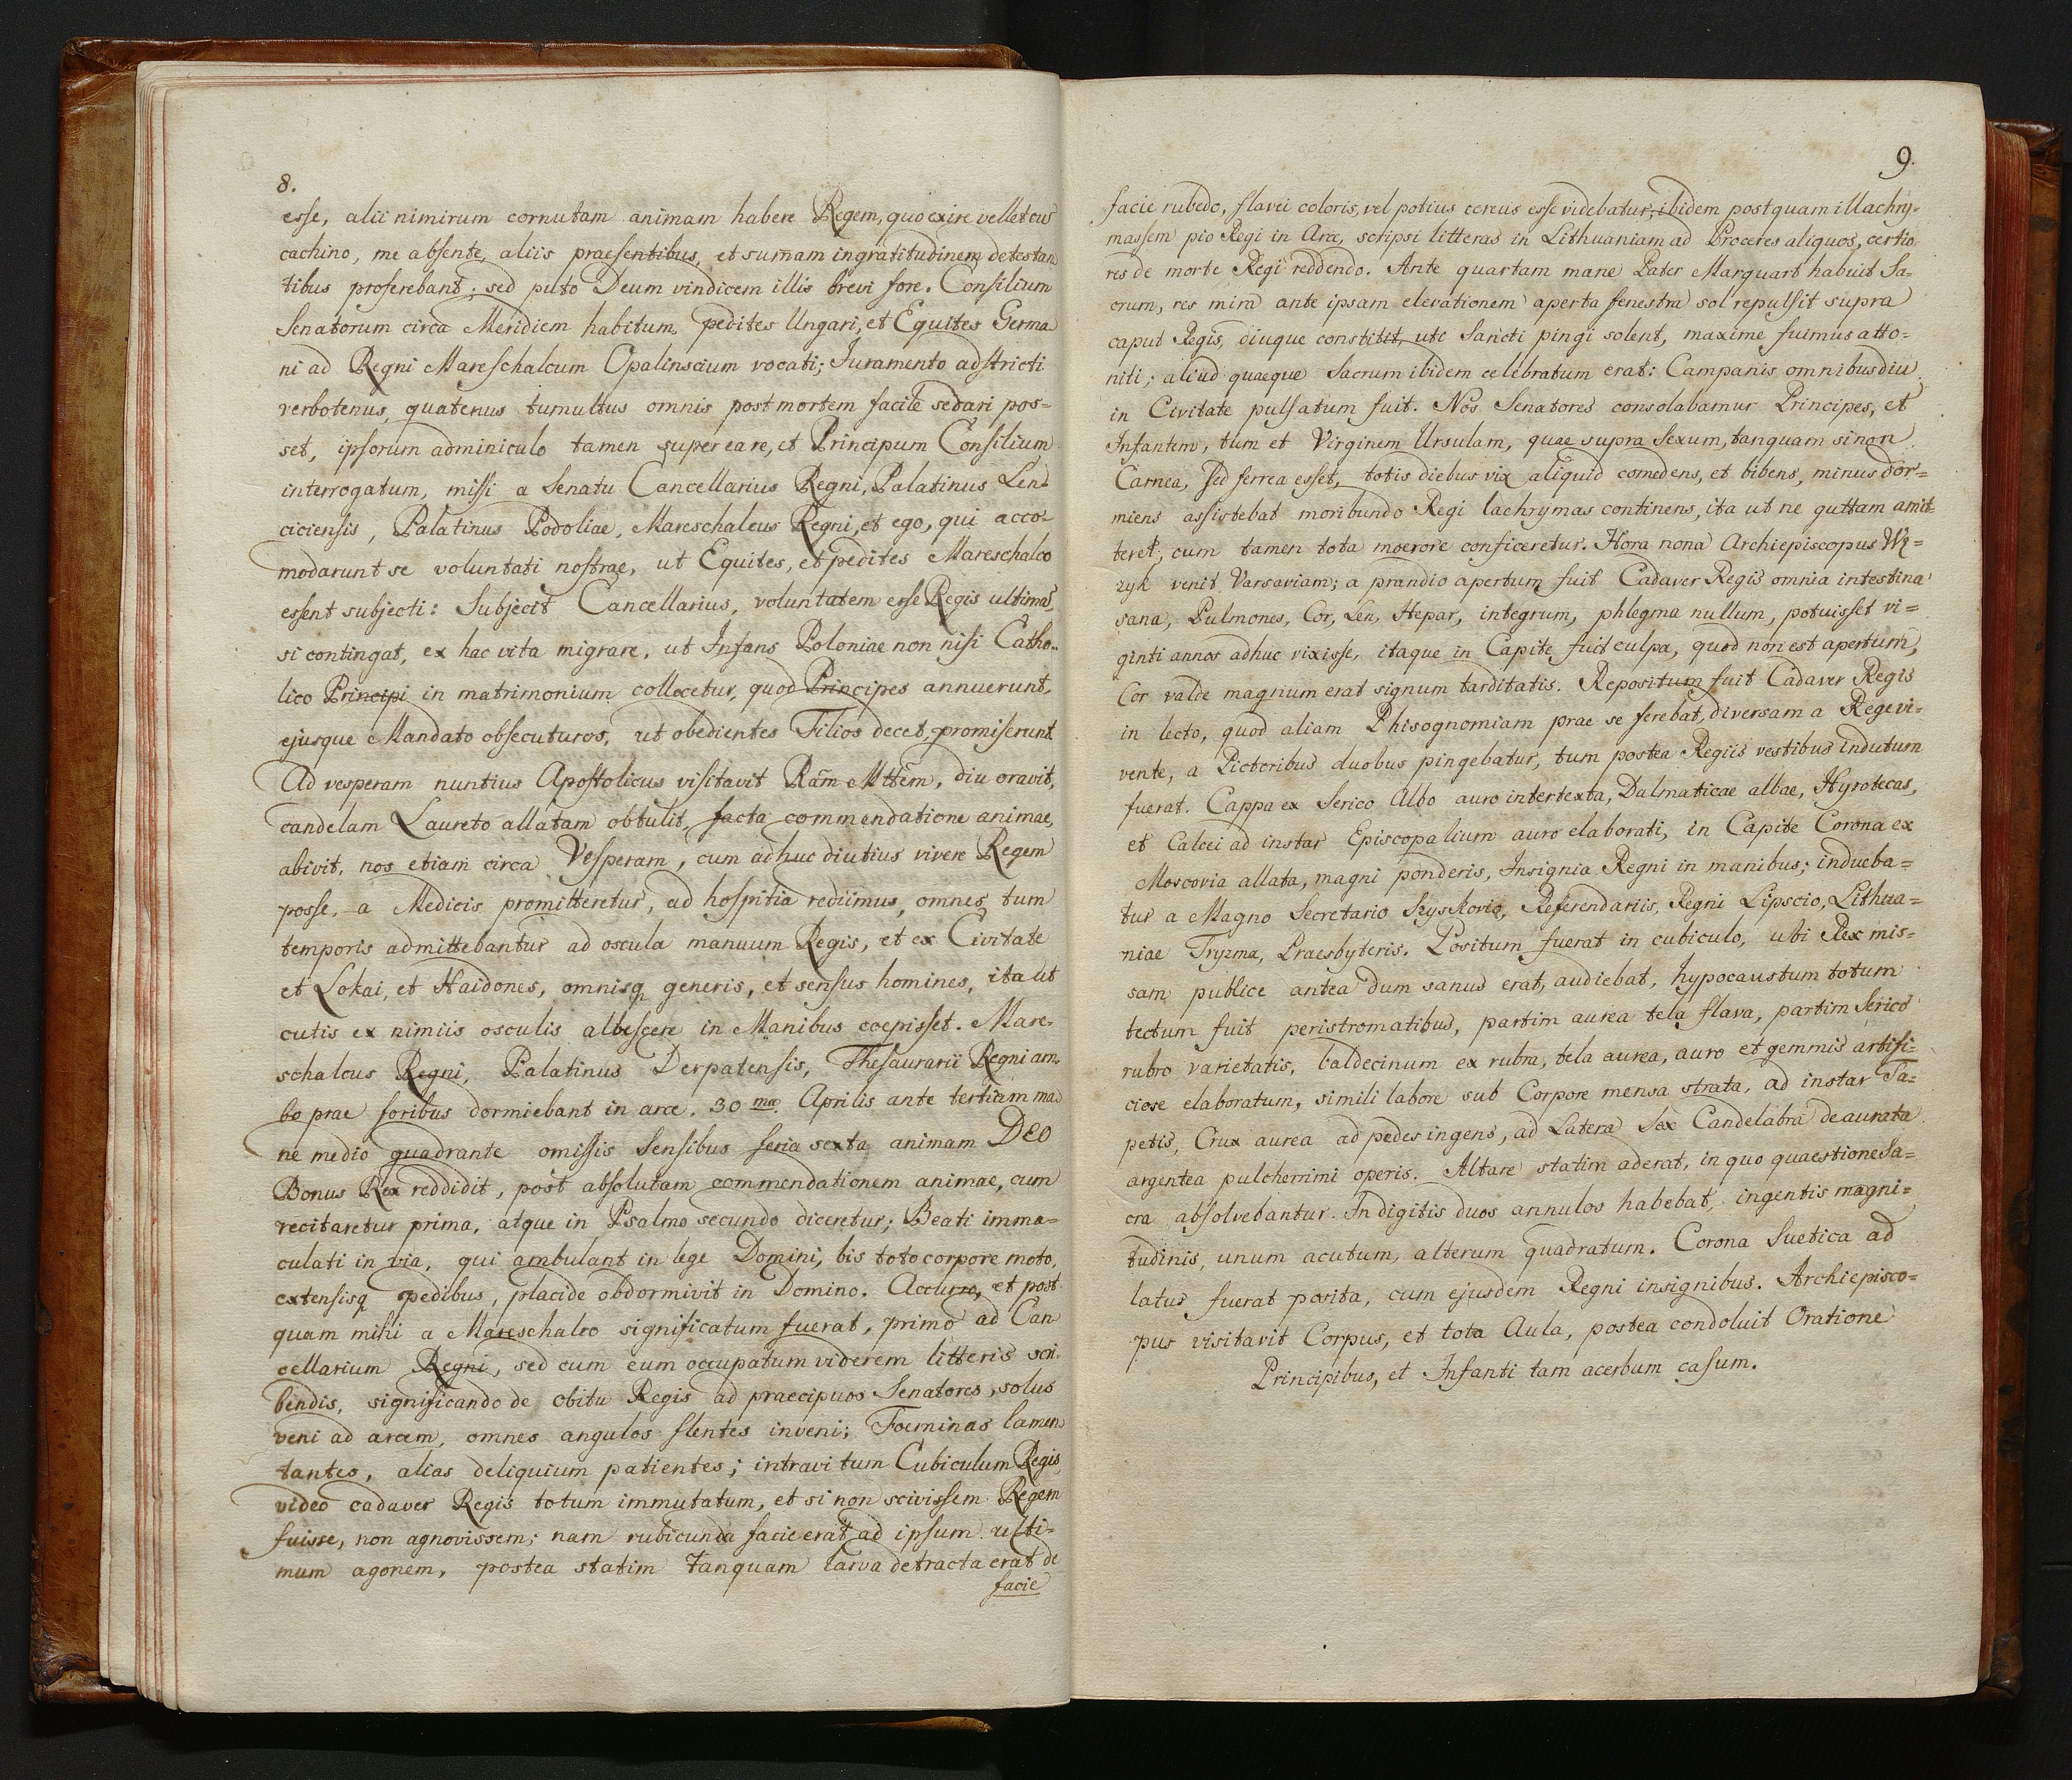 8.
esse, alii nimirum cornutam animam habere Regem, quo exire vellet cus
cachino, me absente, aliis praesentibus, et sum̄am ingratitudinem detestan
tibus proferebant; sed puto Deum vindicem illis brevi fore. Consilium
Senatorum circa Meridiem habitum, pedites Ungari, et Equites Germa
ni ad Regni Mareschalcum Opalinscium vocati; Juramento adstricti
verbotenus, quatenus tumultus omnis post mortem facile sedari pos=
set, ipsorum adminiculo tamen super ea re, et Principum Consilium
interrogatum, missi a Senatu Cancellarius Regni, Palatinus Len=
ciciensis, Palatinus Podoliae, Mareschalcus Regni, et ego, qui acco=
modarunt se voluntati nostrae, ut Equites, et pedites Mareschalco
essent subjecti: Subjecit Cancellarius, voluntatem esse Regis ultimā,
si contingat, ex hac vita migrare, ut Infans Poloniae non nisi Catho=
lico Principi in matrimonium collocetur, quod Principes annuerunt,
ejusque Mandato obsecuturos, ut obedientes Filios decet, promiserunt
Ad vesperam nuntius Apostolicus visitavit Rām Mttēm, diu oravit,
candelam Laureto allatam obtulit, facta commendatione animae,
abivit, nos etiam circa Vesperam, cum adhuc diutius vivere Regem
posse, a Medicis promitteretur, ad hospitia rediimus, omnes tum
temporis admittebantur ad oscula manuum Regis, et ex Civitate
et Lokai, et Haidones, omnisq generis, et sensus homines, ita ut
cutis ex nimiis osculis albescere in Manibus coepisset. Mare=
schalcus Regni, Palatinus Derpatensis, Thesaurarii Regni am=
bo prae foribus dormiebant in arce. 30 ma Aprilis ante tertiam ma=
ne medio quadrante omissis Sensibus feria sexta animam DEO
Bonus Rex reddidit, post absolutam commendationem animae, cum
recitaretur prima, atque in Psalmo secundo diceretur; Beati imma=
culati in via, qui ambulant in lege Domini, bis toto corpore moto,
extensisq pedibus, placide obdormivit in Domino. Accurro, et post
quam mihi a Mareschalco significatum fuerat, primo ad Can
cellarium Regni, sed cum eum occupatum viderem litteris scri=
bendis, significando de obitu Regis ad praecipuos Senatores, solus
veni ad arcem, omnes angulos flentes inveni; Foeminas lamen
tantes, alias deliquium patientes; intravi tum Cubiculum Regis,
video cadaver Regis totum immutatum, et si non scivissem Regem
fuisse, non agnovissem; nam rubicunda facie erat ad ipsum ulti=
mum agonem, postea statim tanquam larva detracta erat de
facie
9.
facie rubedo, flavei coloris, vel potius cereus esse videbatur, ibidem postquam illachry=
massem pio Regi in Arce, scripsi litteras in Lithuaniam ad Proceres aliquos, certio
res de morte Regi reddendo. Ante quartam mane Pater Marquart habuit Sa=
crum, res mira ante ipsam elevationem aperta fenestra sol repulsit supra
caput Regis, diuque constitit, uti Sancti pingi solent, maxime fuimus atto=
niti; aliud quaeque Sacrum ibidem celebratum erat: Campanis omnibus diu
in Civitate pulsatum fuit. Nos Senatores consolabamur Principes, et
Infantem, tum et Virginem Ursulam, quae supra Sexum, tanquam si non
Carnea, sed ferrea esset, totis diebus vix aliquid comedens, et bibens, minus dor=
miens assistebat moribundo Regi lachrymas continens, ita ut ne guttam amit=
teret, cum tamen tota moerore conficeretur. Hora nona Archiepiscopus Wę=
zyk venit Varsaviam; a prandio apertum fuit Cadaver Regis omnia intestina
sana, Pulmones, Cor, Len, Hepar, integrum, phlegma nullum, potuisset vi=
ginti annos adhuc vixisse, itaque in Capite fuit culpa, quod non est apertum,
Cor valde magnum erat signum tarditatis. Repositum fuit Cadaver Regis
in lecto, quod aliam Phisognomiam prae se ferebat, diversam a Rege vi=
vente, a Pictoribus duobus pingebatur, tum postea Regiis vestibus indutum
fuerat. Cappa ex Serico Albo auro intertexta, Dalmaticae albae, Hyrotecas,
et Calcei ad instar Episcopalium auro elaborati, in Capite Corona ex
Moscovia allata, magni ponderis, Insignia Regni in manibus; indueba=
tur a Magno Secretario Szyskovio, Referendariis, Regni Lipscio, Lithua=
niae Tryzna, Praesbyteris. Positum fuerat in cubiculo, ubi Rex mis=
sam publice antea dum sanus erat, audiebat, hypocaustum totum
tectum fuit peristromatibus, partim aurea tela flava, partim Serico
rubro varietatis, baldecinum ex rubra, tela aurea, auro et gemmis artifi=
ciose elaboratum, simili labore sub Corpore mensa strata, ad instar Ta=
petis, Crux aurea ad pedes ingens, ad Latera Sex Candelabra deaurata
argentea pulcherrimi operis. Altare statim aderat, in quo quaestione Sa=
cra absolvebantur. In digitis duos annulos habebat, ingentis magni=
tudinis, unum acutum, alterum quadratum. Corona Suetica ad
latus fuerat posita, cum ejusdem Regni insignibus. Archiepisco=
pus visitavit Corpus, et tota Aula, postea condoluit Oratione
Principibus, et Infanti tam acerbum casum.